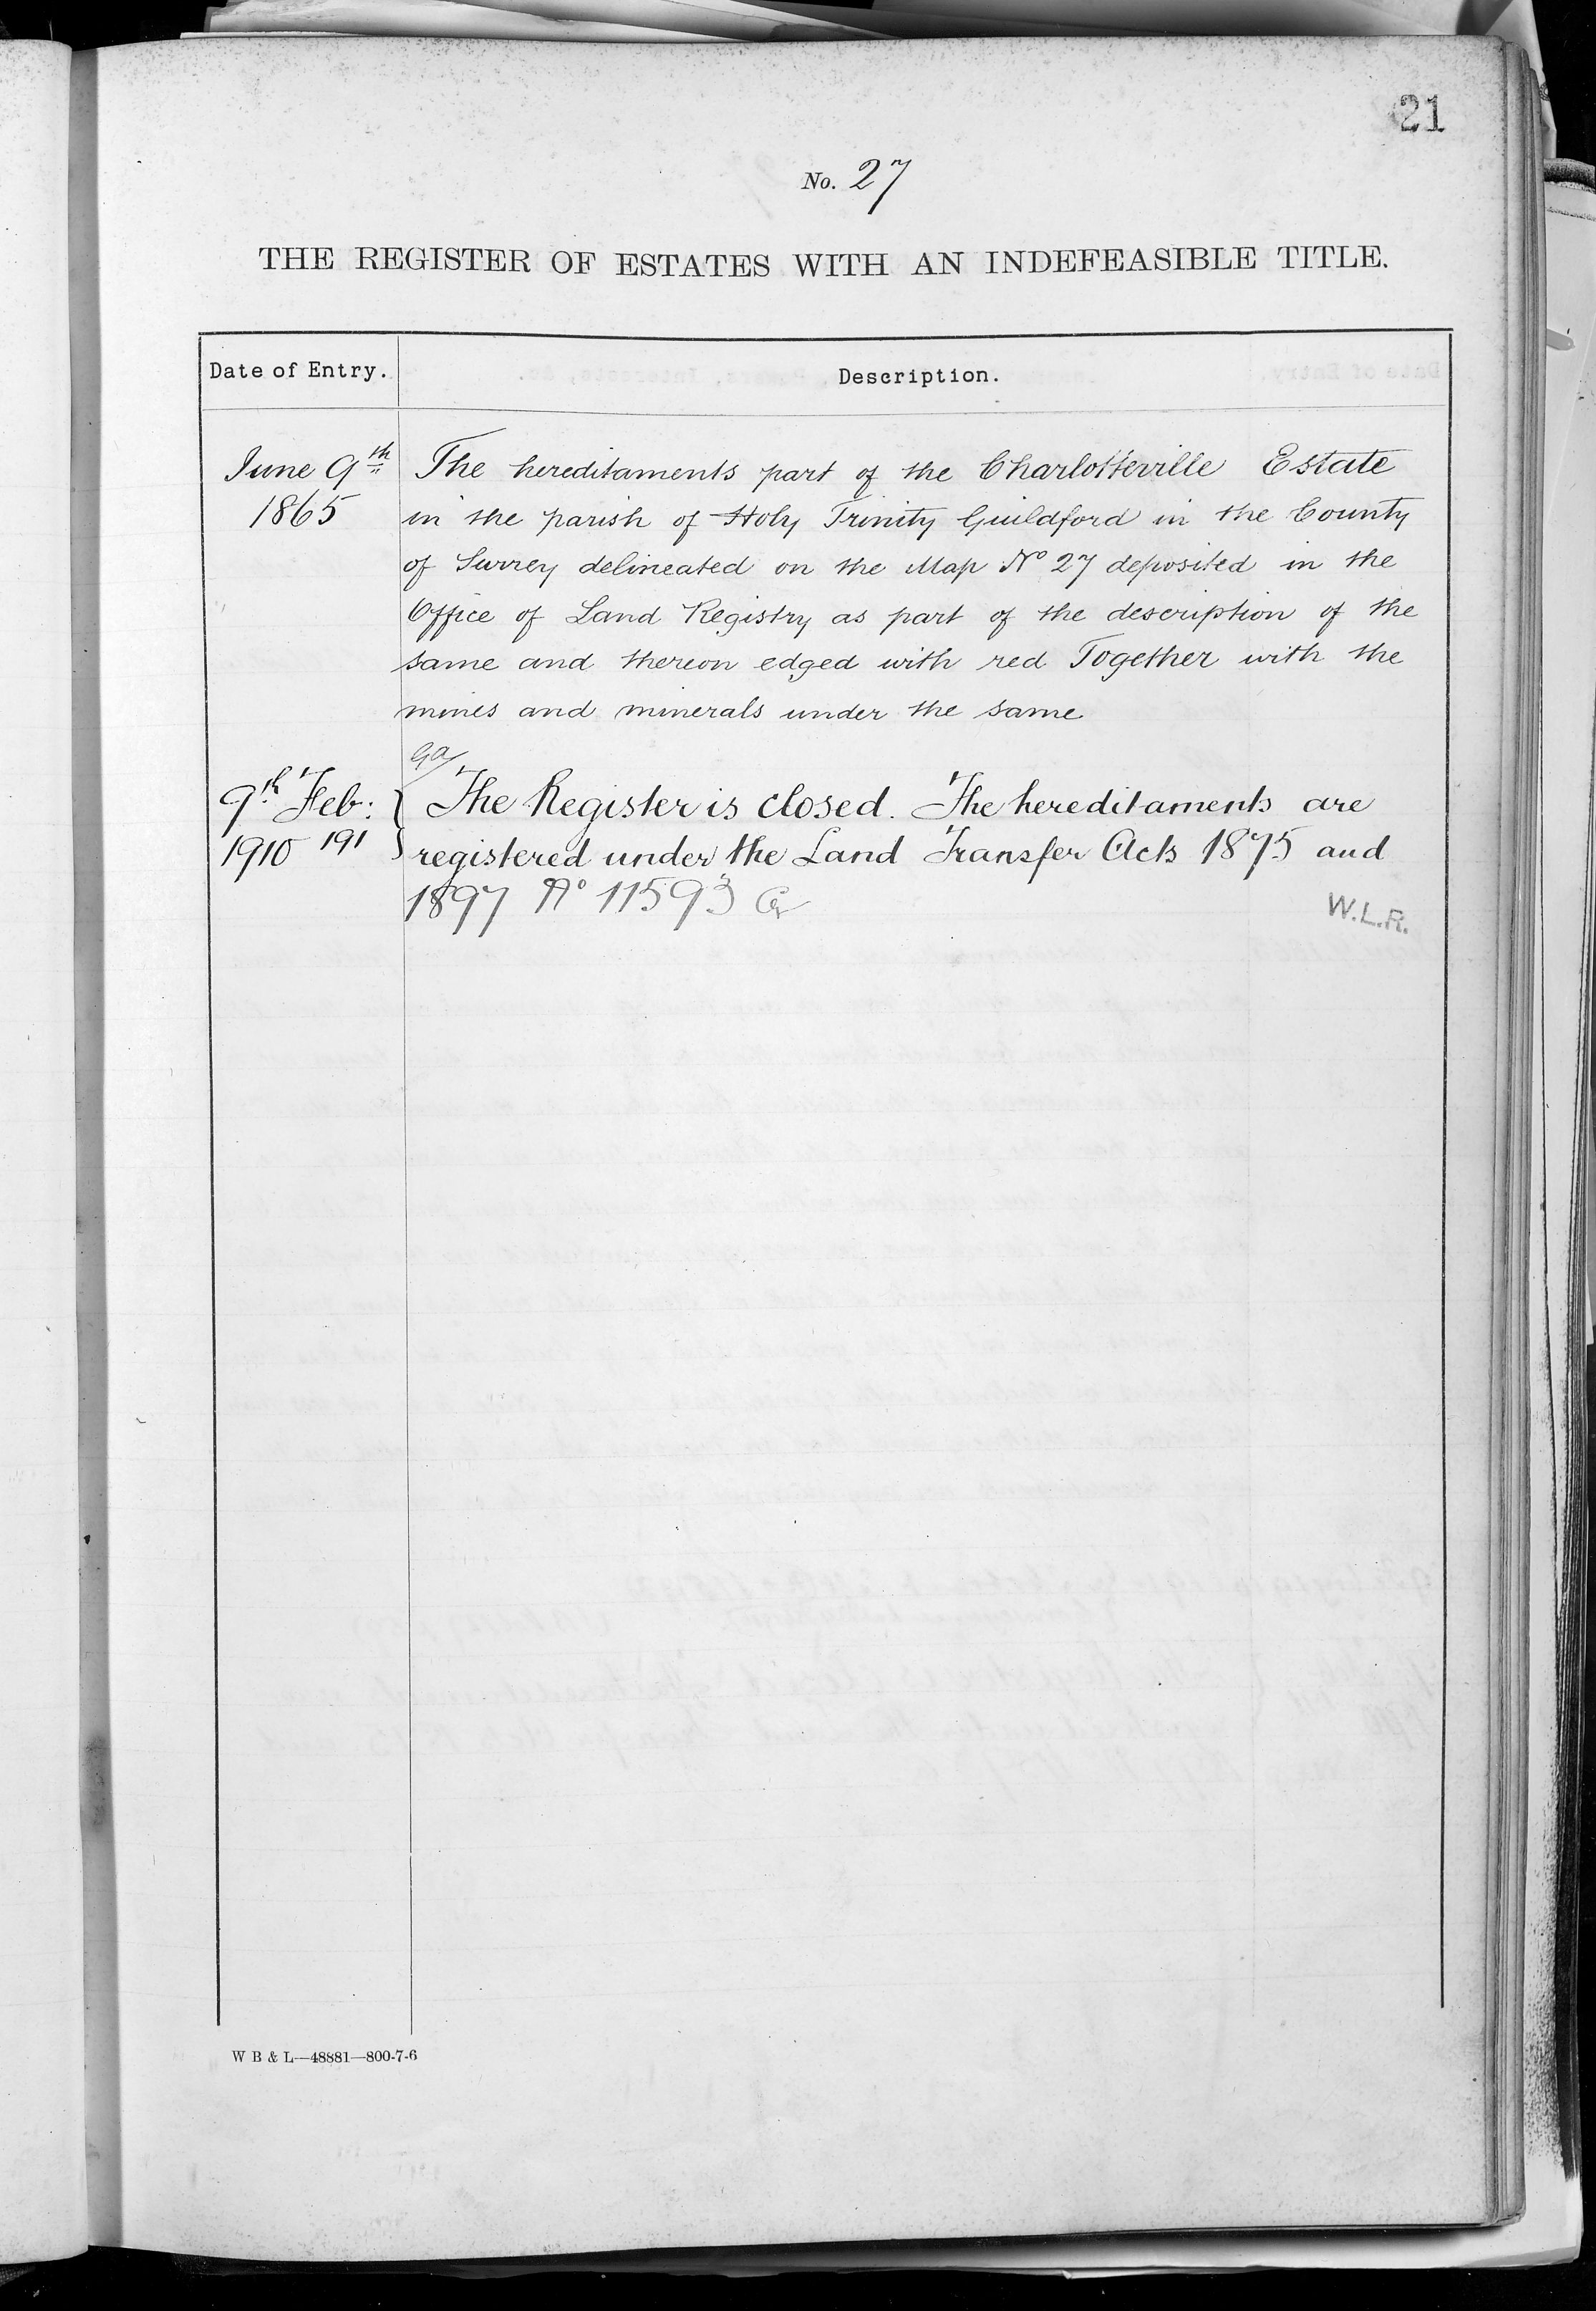 21
No. 27
THE REGISTER OF ESTATES WITH AN INDEFEASIBLE TITLE.
Date of Entry. Description.
June 9th The hereditaments part of the Charlotteville Estate
1865 in the parish of Holy Trinity Guildford in the County
of Surrey delineated on the Map No 27 deposited in the
Office of Land Registry as part of the description of the
same and thereon edged with red Together with the
mines and minerals under the same
9th Feb: The Register is closed. The hereditaments are
1910 191 registered under the Land Transfer Acts 1875 and
1897 No 11593
W.L.R.
W B & L—48881—800-7-6